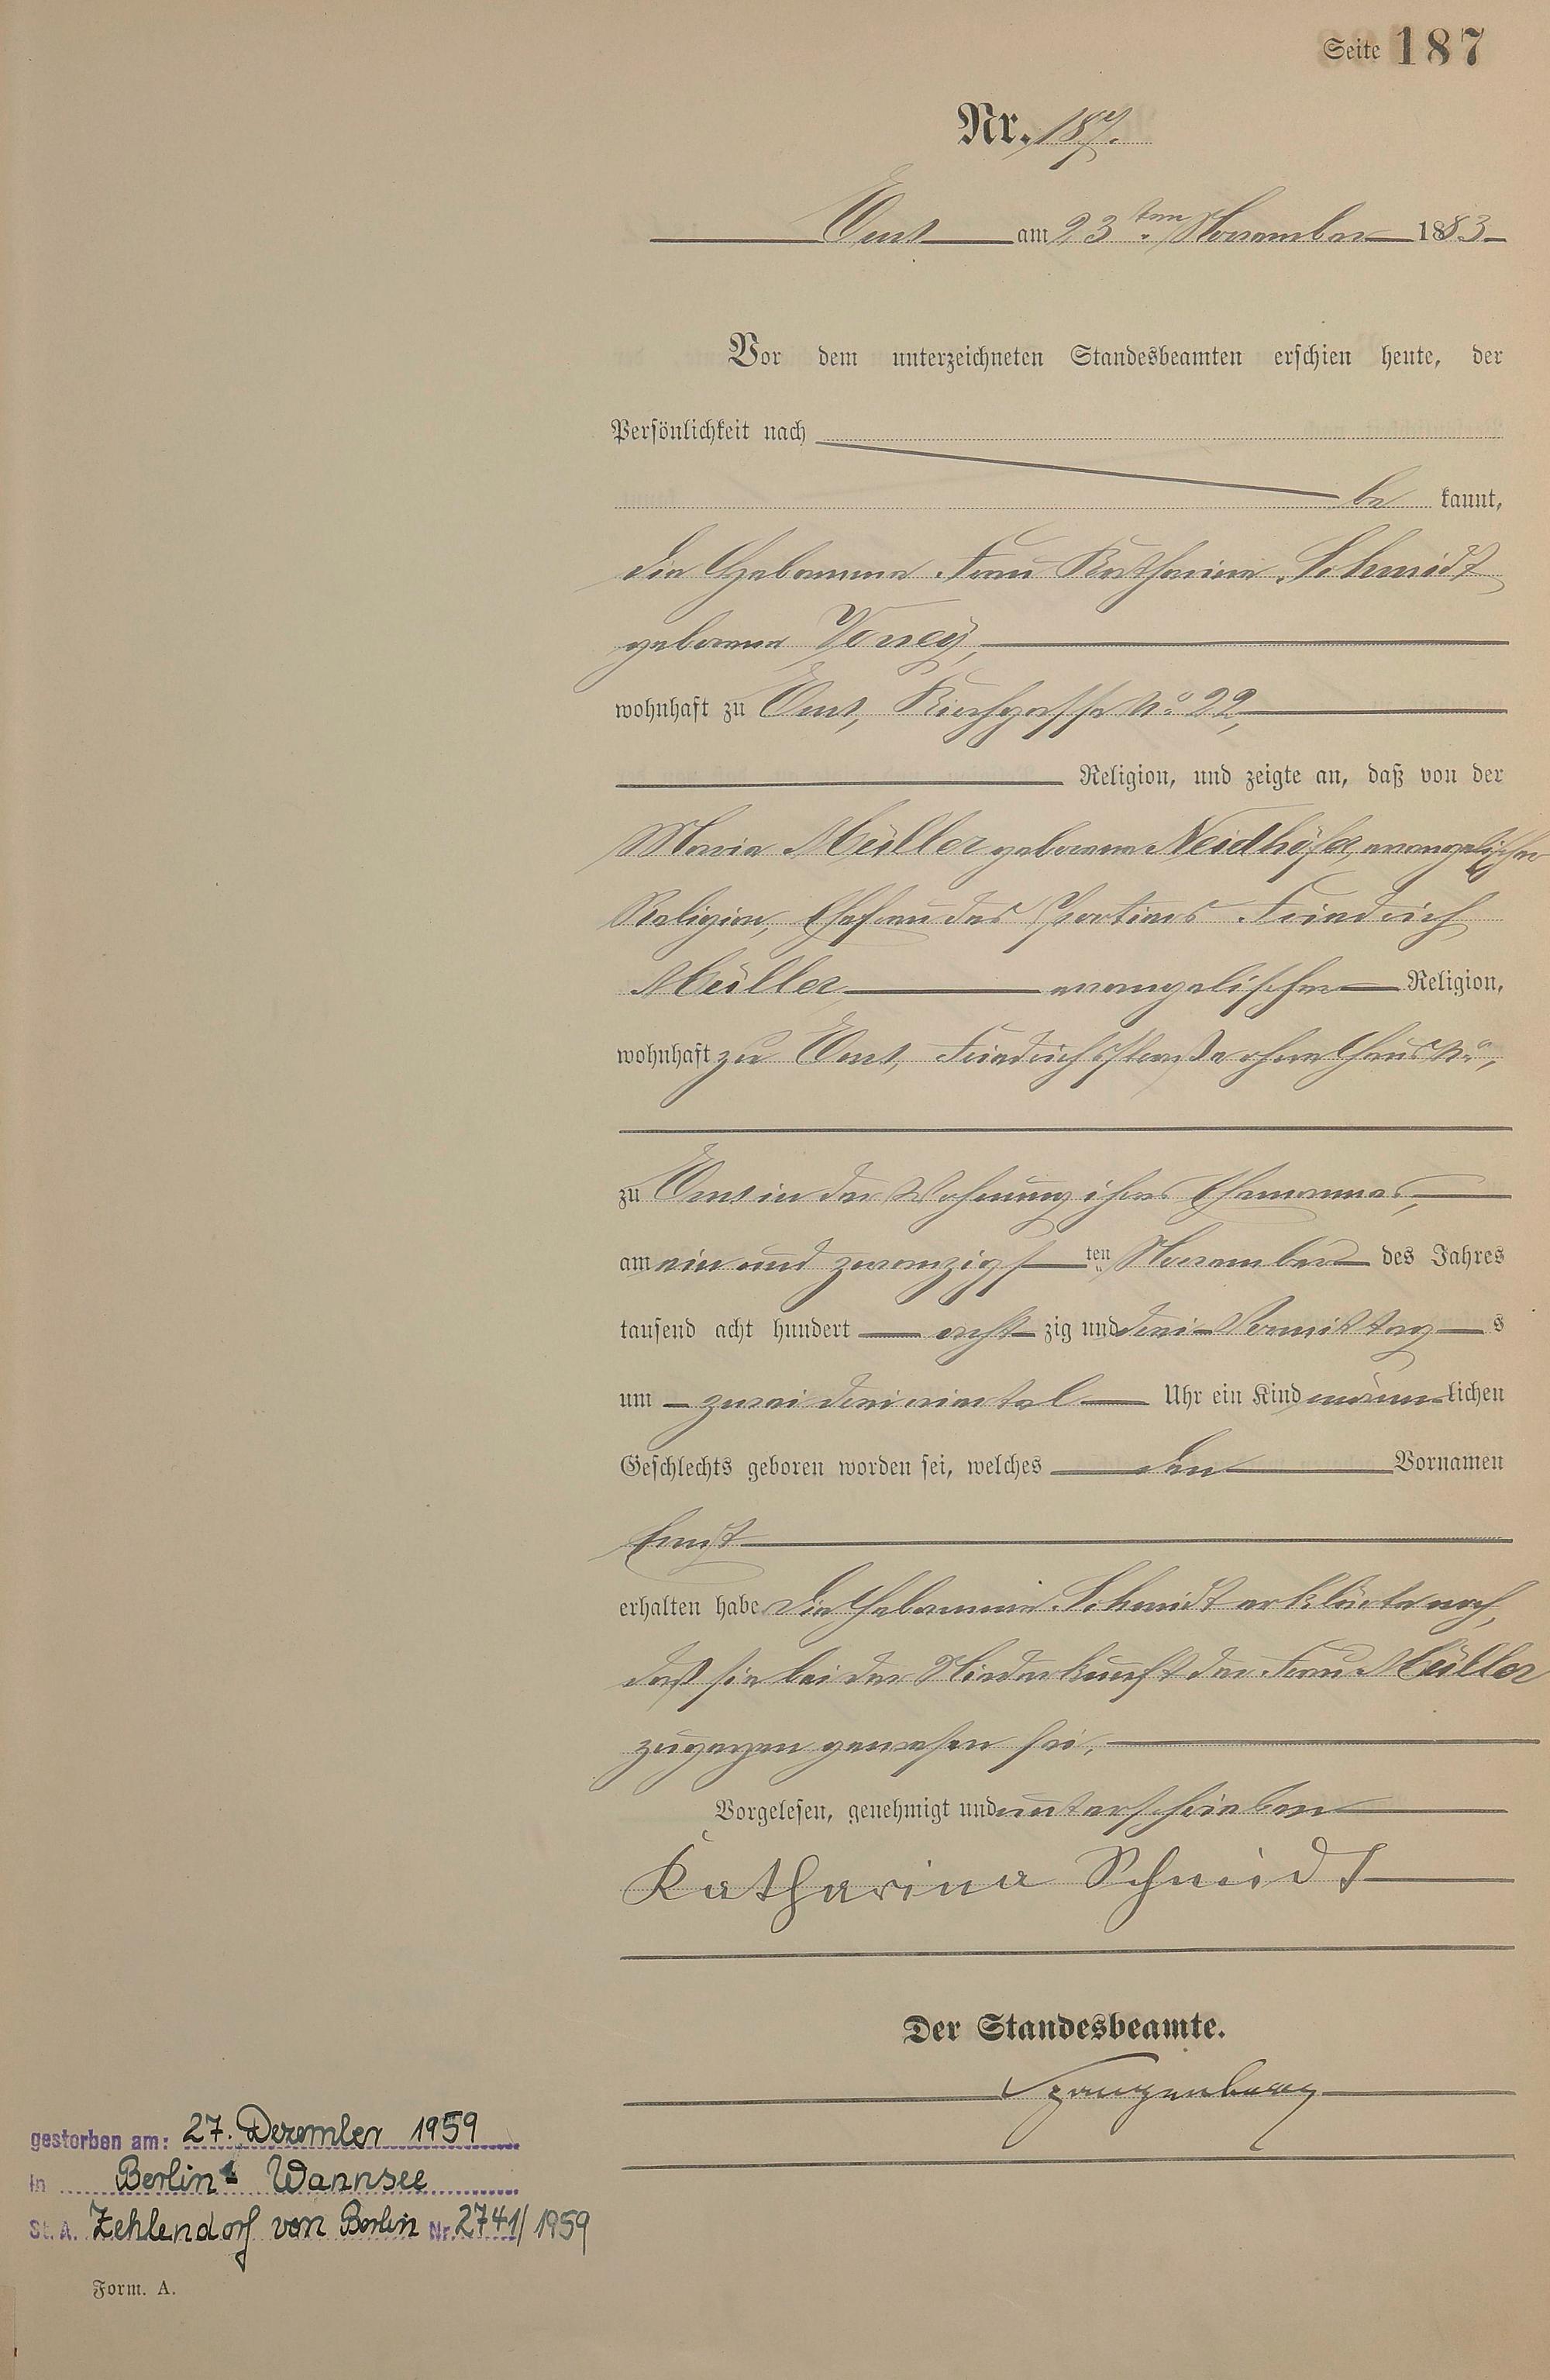 Seite 187
Nr. 187.
Ems am 23ten November 1883
Vor dem unterzeichneten Standesbeamten erschien heute, der
Persönlichkeit nach
be kannt,
die Hebamme Frau Katharina Schmidt
geborene
wohnhaft zu Ems, Kirchgasse No. 22,
Religion, und zeigte an, daß von der
Maria Müller geborene Neidhöfer, evangelischer
Religion, Ehefrau des Portiers Friedrich
Müller evangelischer Religion,
wohnhaft zu Ems, Friedrichsstraße ohne Haus No.,
zu Ems in der Wohnung ihres Ehemannes,
am ein und zwanzigsten November des Jahres
tausend acht hundert acht zig und drei Vormittags
um zwei dreiviertel Uhr ein Kind männlichen
Geschlechts geboren worden sei, welches den Vornamen
Ernst
erhalten habe. Die Hebamme Schmidt erklärte noch,
daß sie bei der Niederkunft der Frau Müller
zugegen gewesen sei.
Vorgelesen, genehmigt und unterschrieben
Katharina Schmidt
Der Standesbeamte.
Spangenberg
gestorben am: 27. Dezember 1959
in Berlin-Wannsee
St. A. Zehlendorf von Berlin Nr. 2741/1959
Form. A.